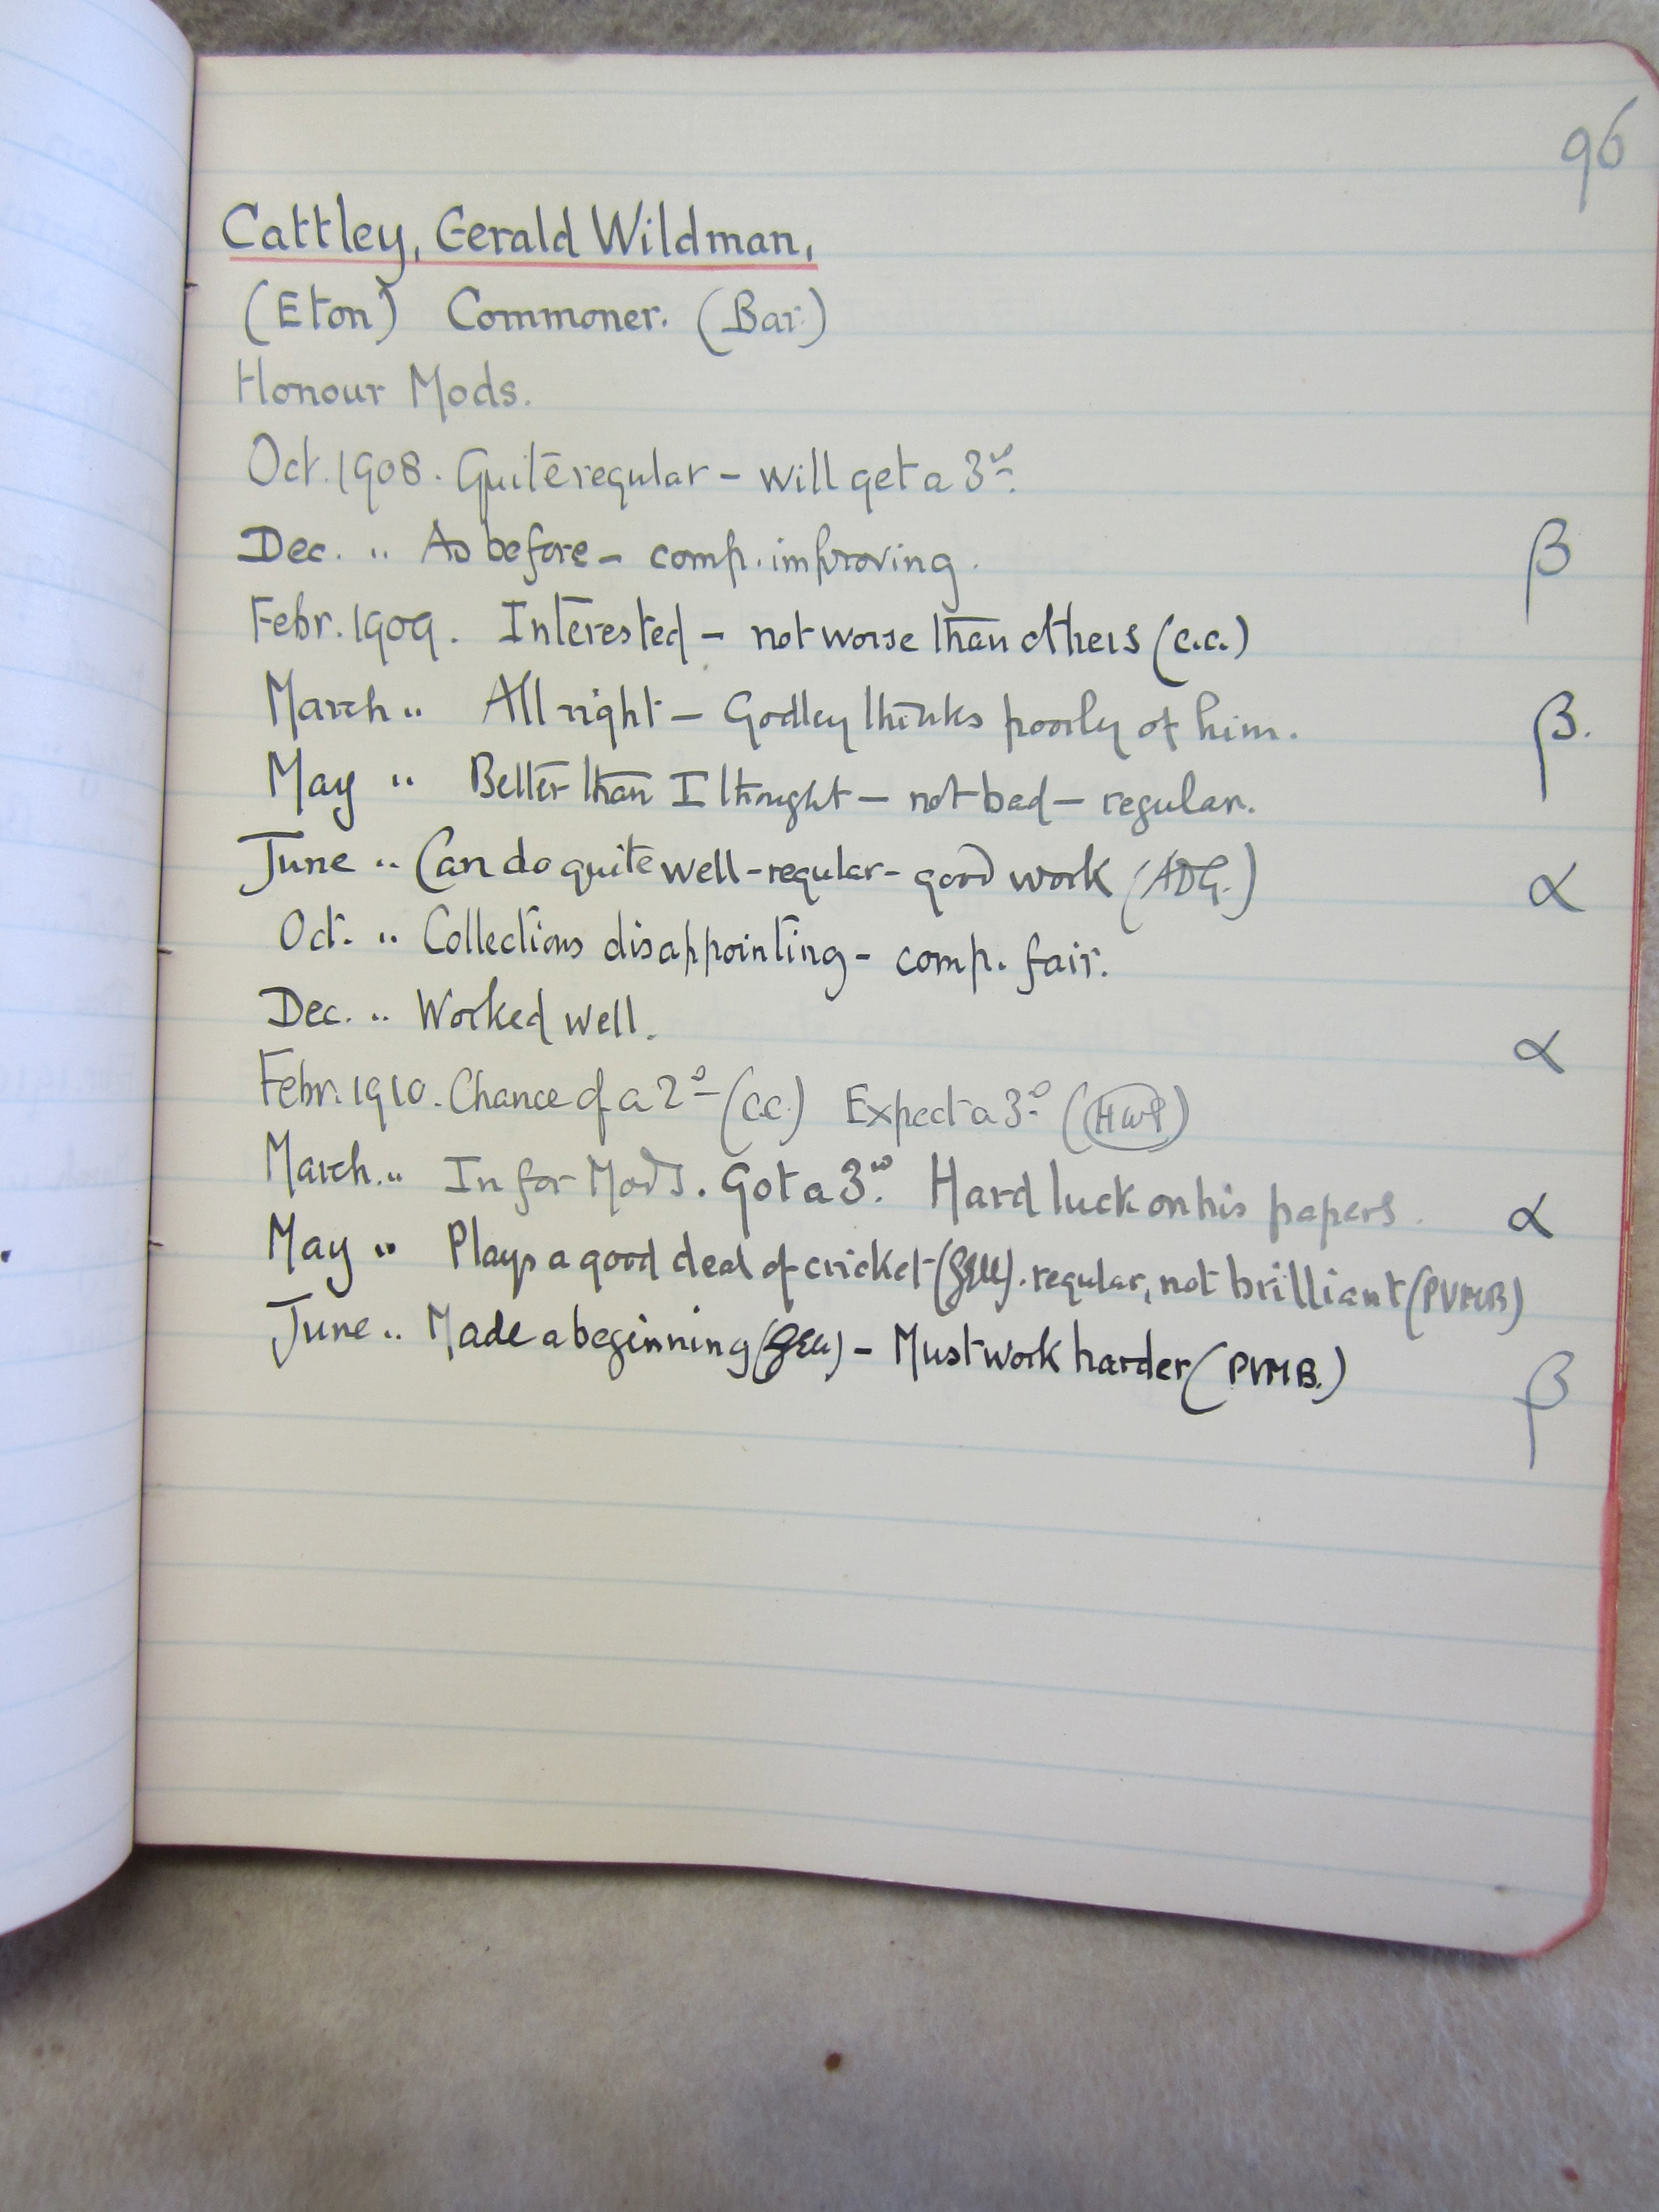 96
Cattley, Gerald Wildman,
(Eton) Commoner. (Bar.)
Honour Mods.
Oct. 1908. Quite regular – will get a 3rd.
Dec. " As before – comp. improving. β
Febr. 1909. Interested – not worse than others (C.C.)
March " All right – Godley thinks poorly of him. β.
May " Better than I thought – not bad – regular.
June " Can do quite well – regular – good work (ADG.) α
Oct. " Collections disappointing – comp. fair.
Dec. " Worked well. α
Febr. 1910. Chance of a 2d (C.C.) Expect a 3d (HWP)
March. " In for Mods. Got a 3rd. Hard luck on his papers. α
May " Plays a good deal of cricket regular, not brilliant (PVMB)
June " Made a beginning – Must work harder (PVMB.) β